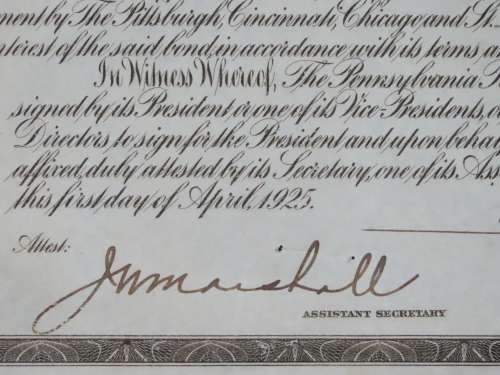 ment by The Pittsburgh, Cincinnati, Chicago and St.
interest of the said bond, in accordance with its terms a
In Witness Whereof, The Pennsylvania
signed by its President or one of its Vice-Presidents, o
Directors to sign for the President and upon behal
affixed, duly attested by its Secretary, one of its Ass
this first day of April, 1925.
Attest:
JW Marshall
ASSISTANT SECRETARY